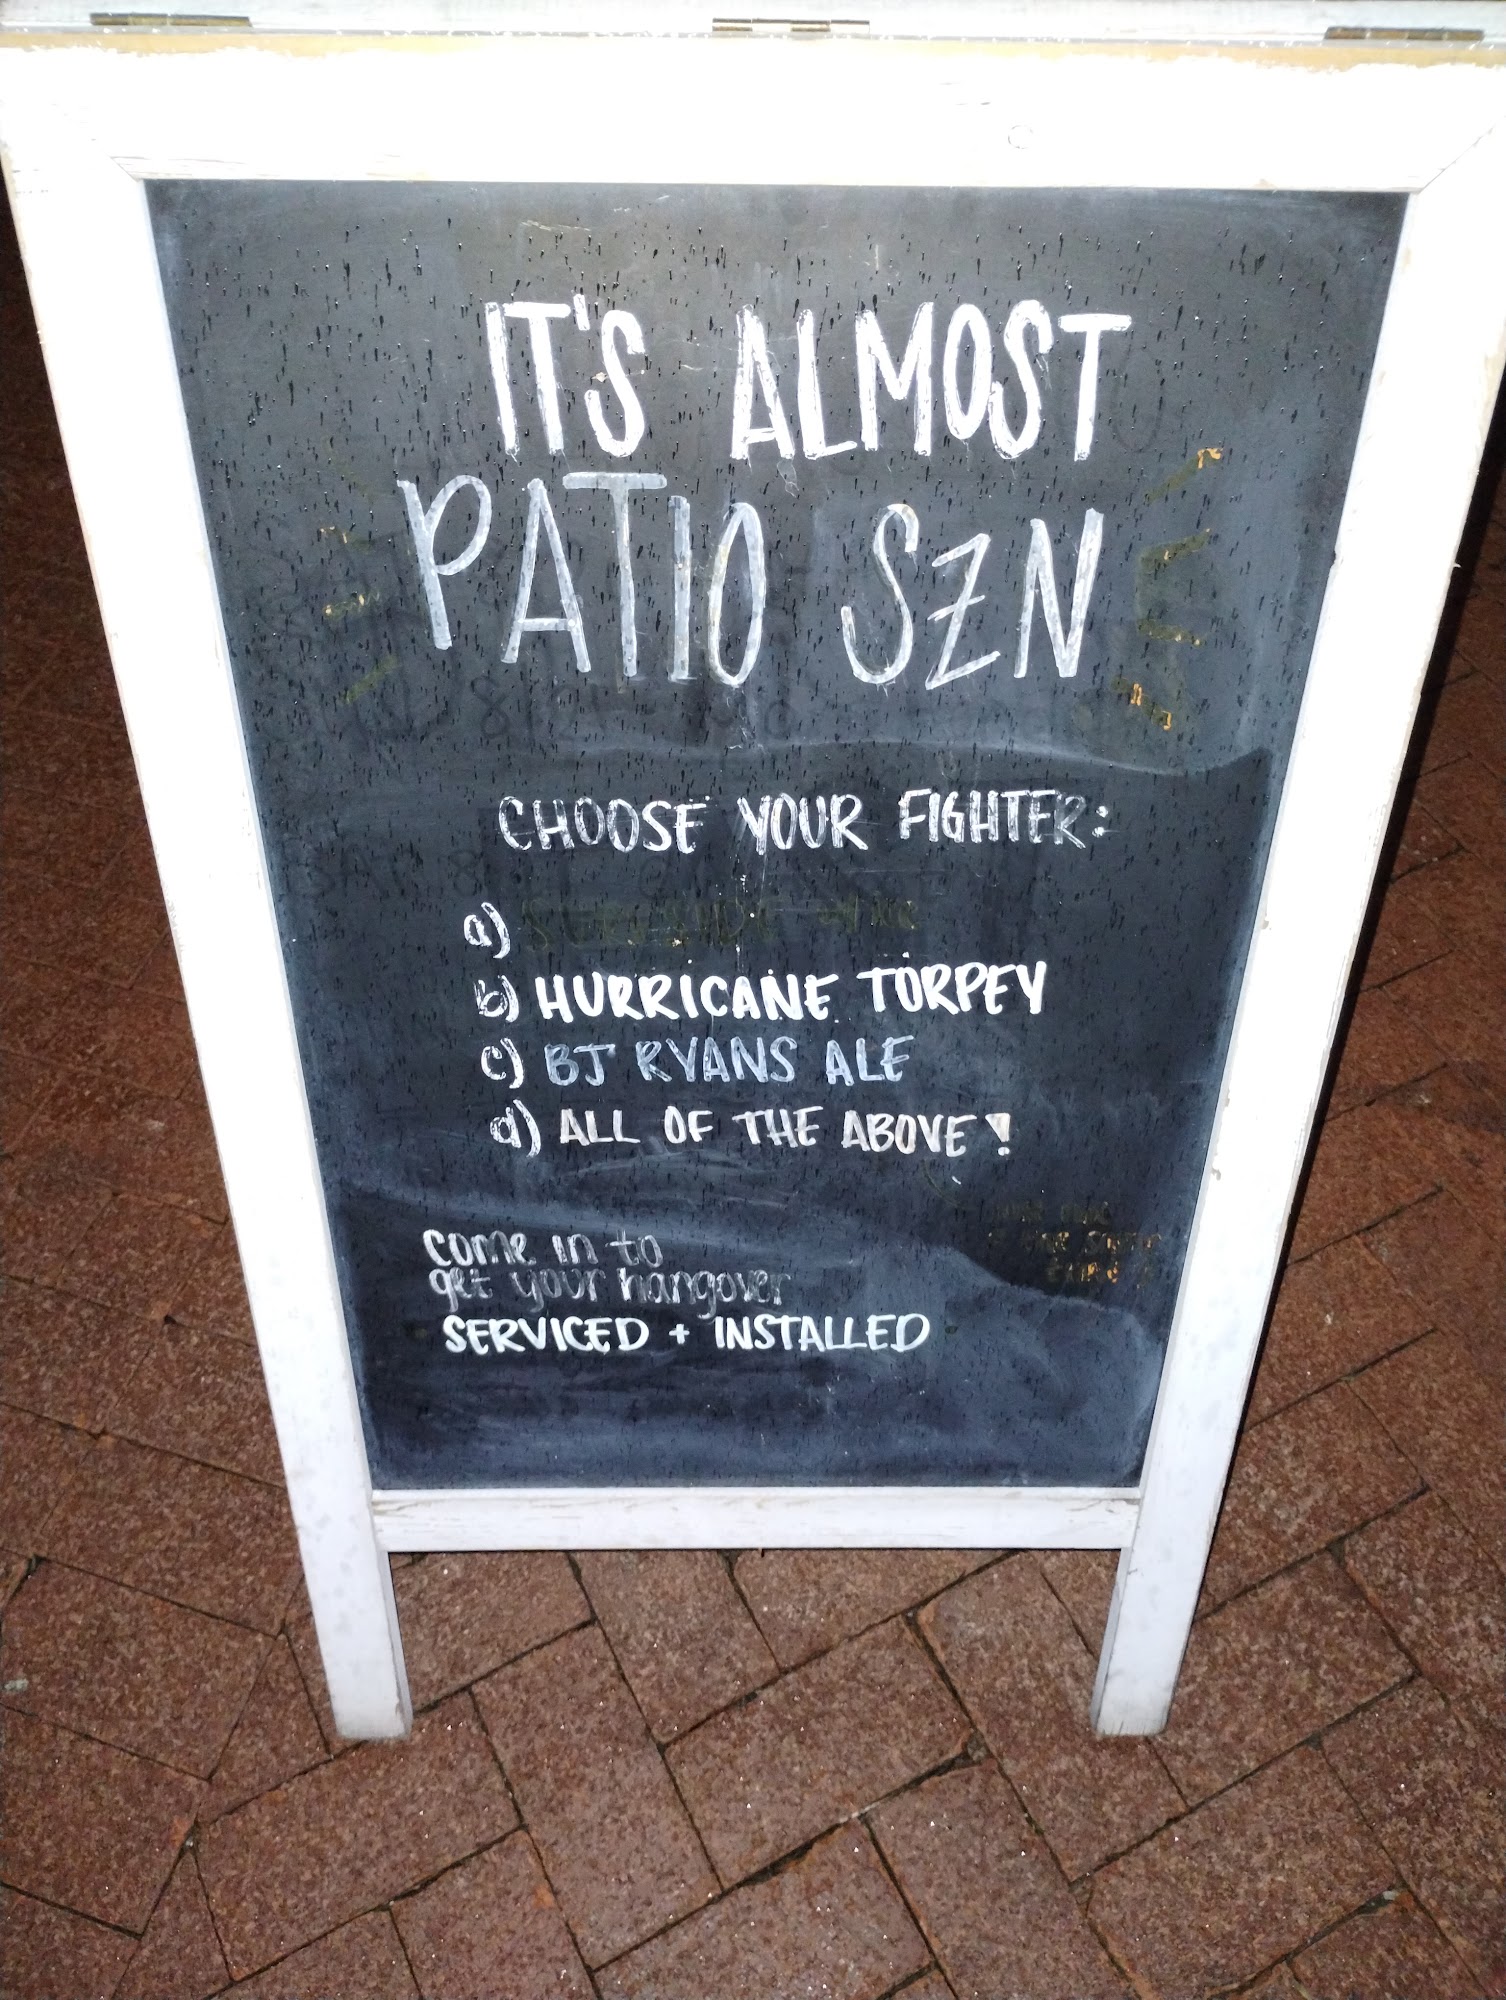 IT'S ALMOST
PATIO SZN
CHOOSE YOUR FIGHTER:
a)
b) HURRICANE TORPEY
c) BJ RYANS ALE
d) ALL OF THE ABOVE!
come in to
get your hangover
SERVICED + INSTALLED